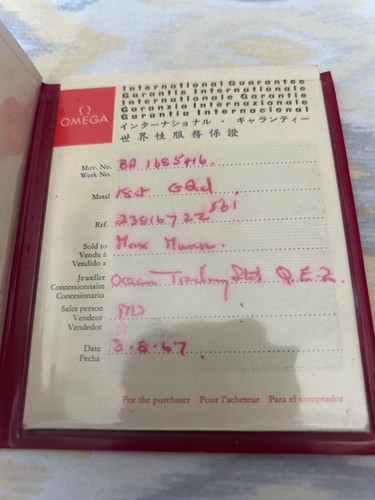 Ω
OMEGA
International Guarantee
Garantie Internationale
Internationale Garantie
Garanzia Internazionale
Garantía Internacional
インターナショナル・ギャランティー
世界性服務保證
Mov. No. BA 1685416.
Work No.
Metal 18ct Gold.
561
Ref. 23816722
Sold to
Vendu à Max
Vendido a
Jeweller
Concessionnaire Ocean Trading Q.E.2.
Concesionario
Sales person
Vendeur MD
Vendedor
Date 8.8.67.
Fecha
For the purchaser Pour l'acheteur Para el comprador